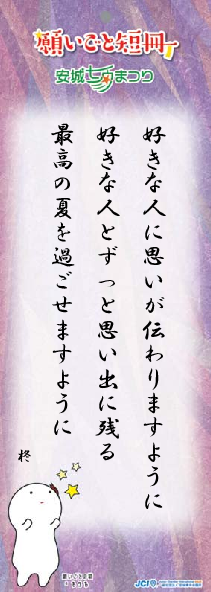 願いごと短冊
安城七夕まつり
好きな人に思いが伝わりますように
好きな人とずっと思い出に残る
最高の夏を過ごせますように
柊
願いごと短冊
JCI